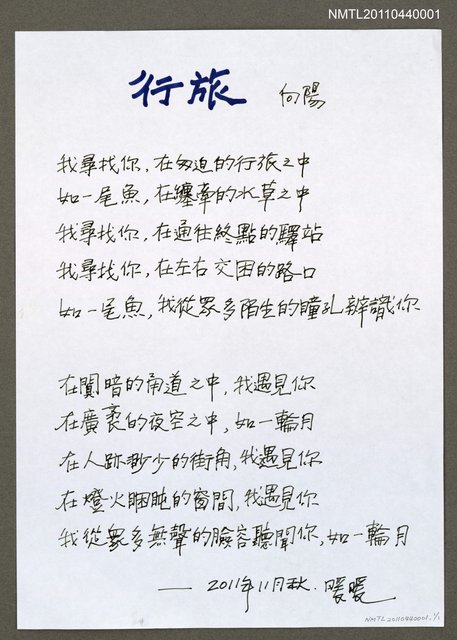 NMTL20110440001
行旅 向陽
我尋找你，在匆迫的行旅之中
如一尾魚，在纏牽的水草之中
我尋找你，在通往終點的驛站
我尋找你，在左右交困的路口
如一尾魚，我從眾多陌生的瞳孔辨識你
在闃暗的甬道之中，我遇見你
在廣袤的夜空之中，如一輪月
在人跡渺少的街角，我遇見你
在燈火睏盹的窗間，我遇見你
我從眾多無聲的臉容聽聞你，如一輪月
—— 2011年11月秋．暖暖
NMTL20110440001.1/1